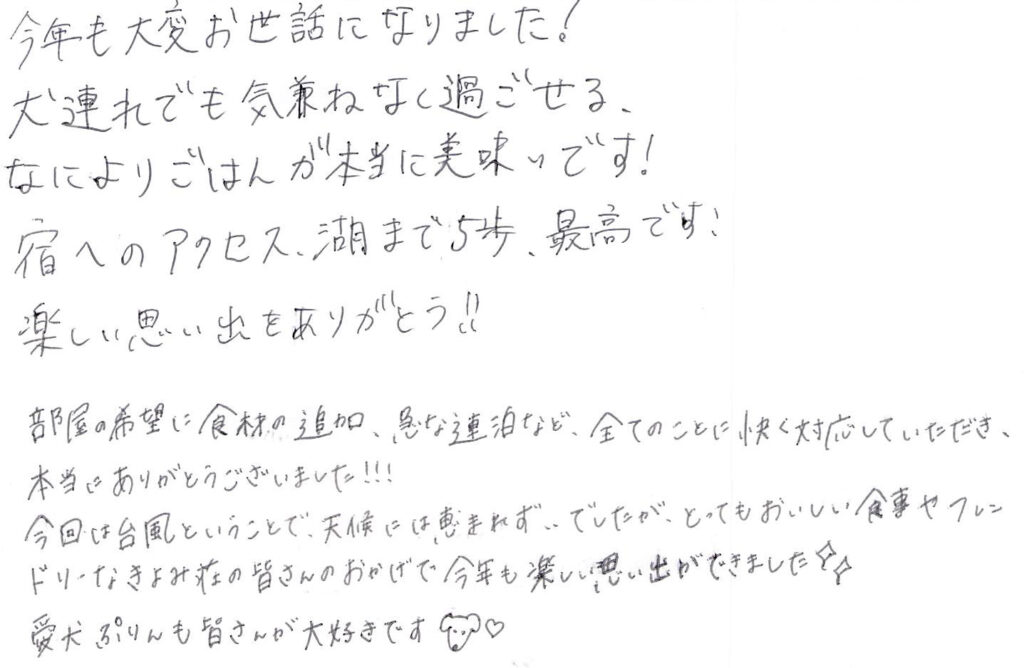 今年も大変お世話になりました!
犬連れでも気兼ねなく過ごせる、
なによりごはんが本当に美味いです!
宿へのアクセス、湖まで5歩、最高です!
楽しい思い出をありがとう!!
部屋の希望に食材の追加、急な連泊など、全てのことに快く対応していただき、
本当にありがとうございました!!!
今回は台風ということで、天候には恵まれず、、でしたが、とってもおいしい食事やフレン
ドリーなきよみ荘の皆さんのおかげで今年も楽しい思い出ができました✧✧
愛犬ぷりんも皆さんが大好きです♡